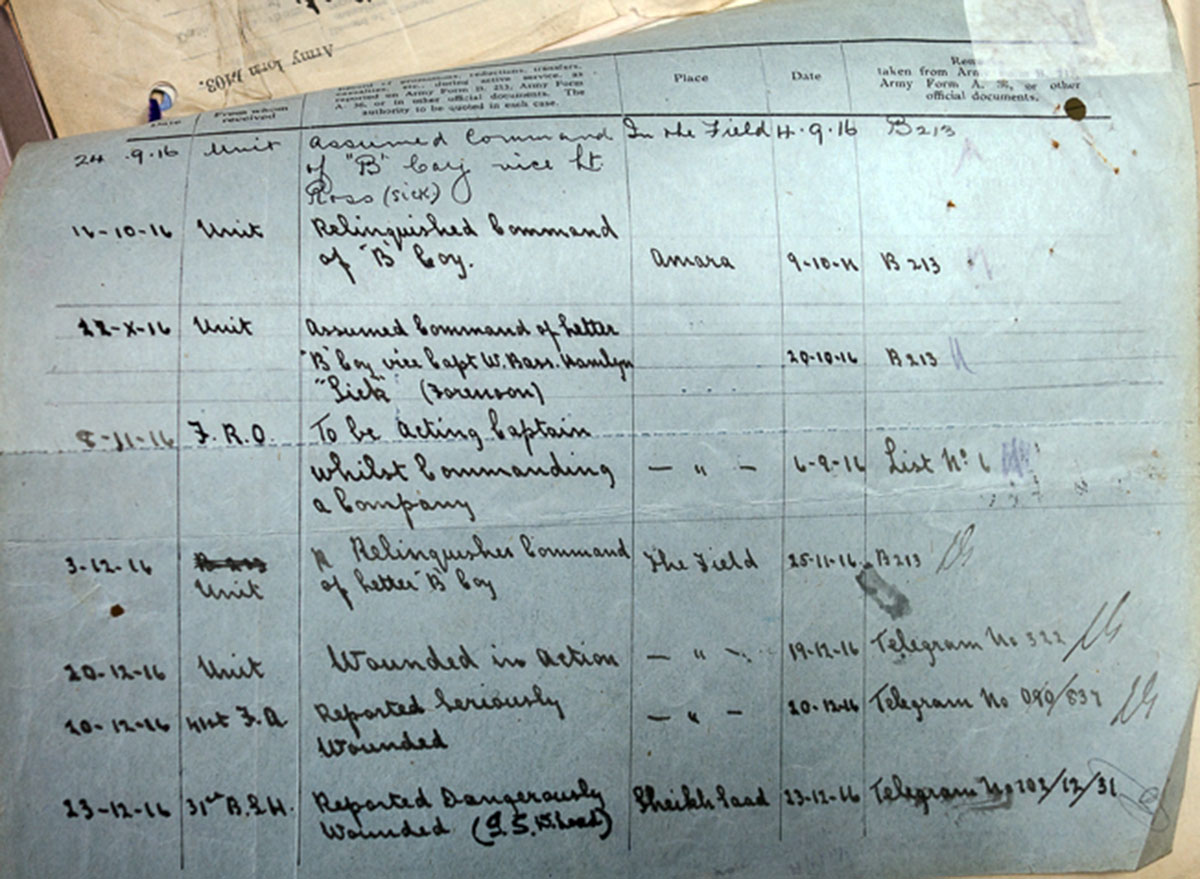 Army Form B.103.
Date
From whom received
Record of promotions, reductions, transfers, casualties, etc., during active service, as reported on Army Form B. 213, Army Form A. 36, or in other official documents. The authority to be quoted in each case.
Place
Date
taken from Army Form
Army Form A. 36, or other
official documents.
24 .9.16 Unit Assumed Command In the Field 4.9.16 B213
of "B" Coy vice Lt
Ross (sick)
16-10-16 Unit Relinquished Command
of "B" Coy. Amara 9-10-16 B 213
22-X-16 Unit Assumed Command of Letter
"B" Coy vice Capt W. Bass. Hamlyn 20-10-16 B213
"Sick" (Forenoon)
8-11-16 F.R.O. To be Acting Captain
whilst Commanding — " — 6-9-16 List No. 6
a Company
3-12-16 Relinquishes Command The Field 25-11-16. B213
Unit of Letter "B" Coy
20-12-16 Unit Wounded in Action — " — 19-12-16 Telegram No 322
20-12-16 41st F.A. Reported Seriously — " — 20-12-16 Telegram No 090/837
Wounded
23-12-16 31st B.S.H. Reported Dangerously Sheikh Saad 23-12-16 Telegram No 102/12/31
Wounded (G.S.W. head)